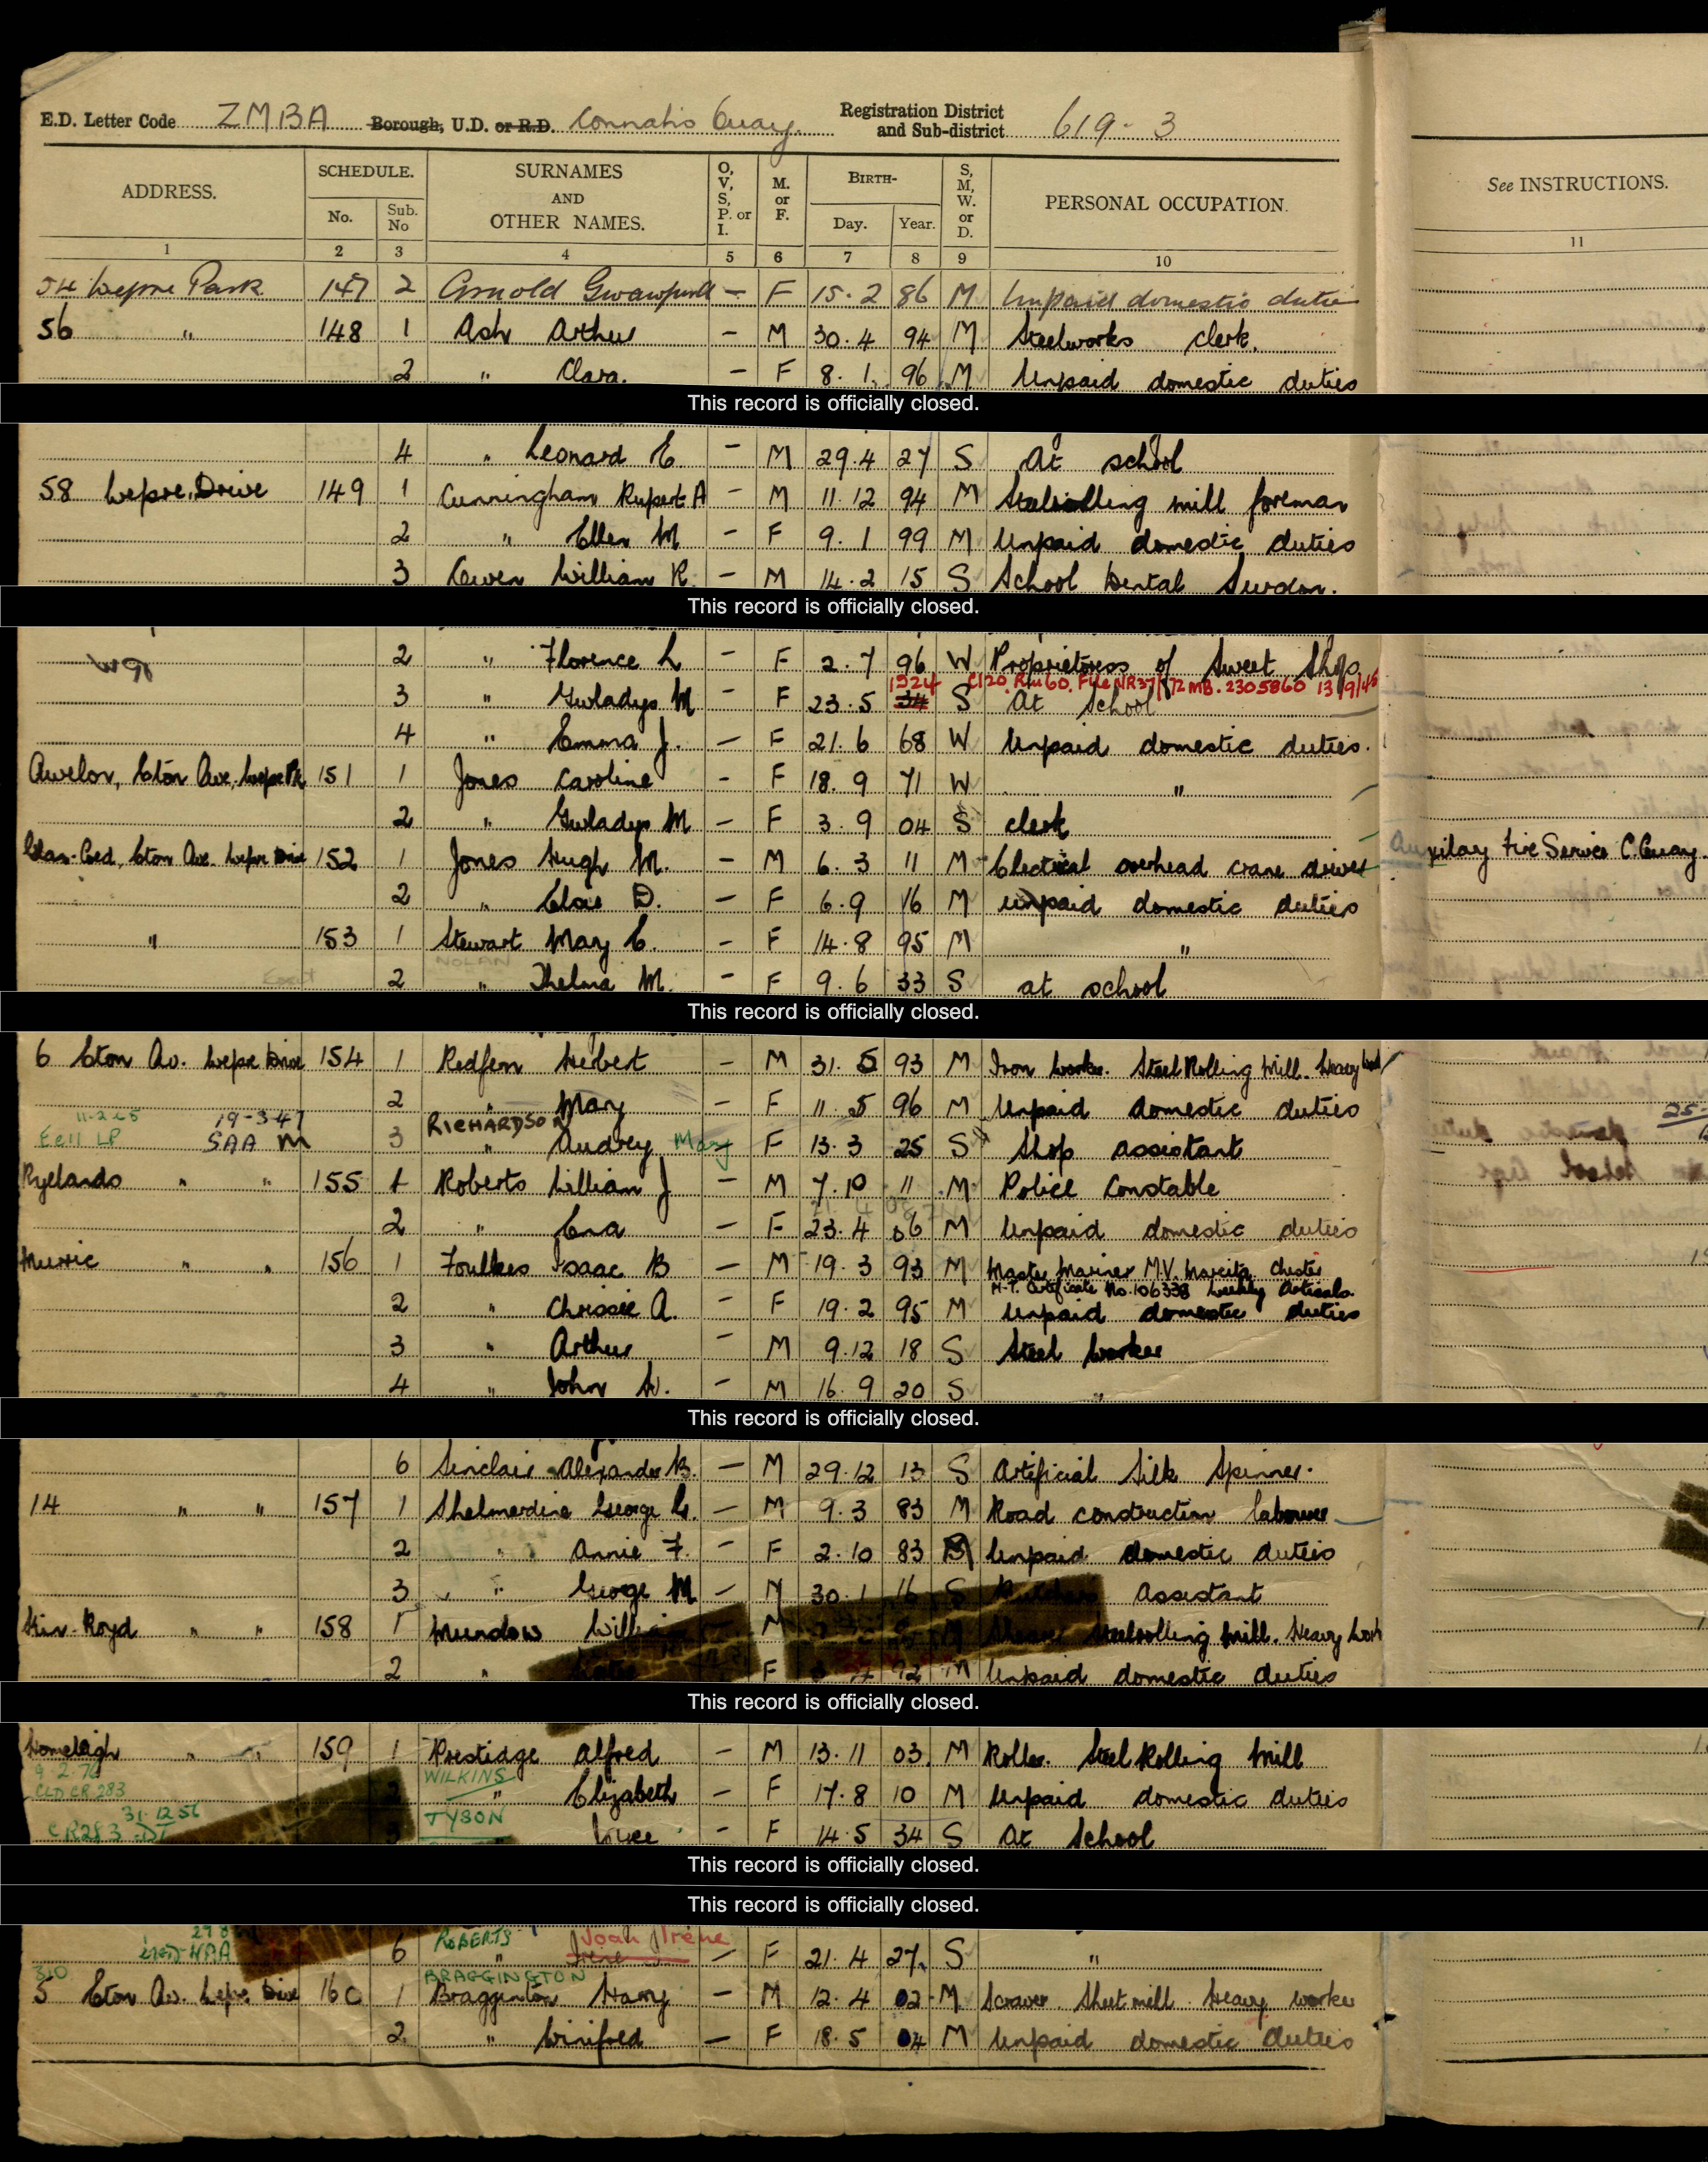 E.D. Letter Code ZMBA Borough, U.D. or R.D. Connahs Quay Registration District and Sub-district 619-3
ADDRESS. SCHEDULE. No. Sub. No SURNAMES AND OTHER NAMES. O, V, S, P. or I. M. or F. BIRTH- Day. Year. S, M, W. or D. PERSONAL OCCUPATION. See INSTRUCTIONS.
1 2 3 4 5 6 7 8 9 10 11
54 Wepre Park 147 2 Arnold — F 15.2 86 M Unpaid domestic duties
56 " 148 1 Ash Arthur - M 30.4 94 M Steelworks clerk.
2 " Clara. - F 8.1. 96 M Unpaid domestic duties
This record is officially closed.
4 " Leonard E - M 29.4 27 S At school
58 Wepre Drive 149 1 Cunningham Rupert A - M 11.12 94 M Steelrolling mill foreman
2 " Ellen M - F 9.1 99 M Unpaid domestic duties
3 Owen William R. - M 14.2 15 S School Dental
This record is officially closed.
2 " Florence L - F 2.7 96 W Proprietress of Sweet Shop
1924 C120. Rm60. File NR37/72MB. 2305860 13/9/46
3 " Gwladys M - F 23.5 34 S At School
4 " Emma J. - F 21.6 68 W Unpaid domestic duties.
Awelon, Eton Ave, Wepre Pk 151 1 Jones Caroline - F 18.9 71 W "
2 " Gwladys M - F 3.9 04 S clerk
Glan-Coed, Eton Ave. Wepre Drive 152 1 Jones Hugh M. - M 6.3 11 M Electrical overhead crane driver Auxilary Fire Service C. Quay.
2 " Elsie D. - F 6.9 16 M unpaid domestic duties
" 153 1 Stewart Mary E. - F 14.8 95 M "
NOLAN
2 " Thelma M. - F 9.6 33 S at school
This record is officially closed.
6 Eton Av. Wepre Drive 154 1 Redfern Herbert - M 31.5 93 M Iron worker. Steel Rolling Mill. Heavy
2 " Mary - F 11.5 96 M Unpaid domestic duties
11-2-65 19-3-47 RICHARDSON
LP SAA M 3 " Audrey Mary F 13.3 25 S Shop assistant
Ryelands " " 155 1 Roberts William J - M 7.10 11 M Police Constable
2 " Ena - F 23.4 06 M Unpaid domestic duties
" " 156 1 Foulkes Isaac B - M 19.3 93 M Master Mariner M.V. Chester
Certificate No. 106338 Weekly
2 " Chrissie A. - F 19.2 95 M Unpaid domestic duties
3 " Arthur - M 9.12 18 S Steel worker
4 " John W. - M 16.9 20 S "
This record is officially closed.
6 Sinclair Alexander B. - M 29.12 13 S Artificial Silk Spinner.
14 " " 157 1 Shelmerdine George L. - M 9.3 83 M Road construction labourer
2 " Annie F. - F 2.10 83 M Unpaid domestic duties
3 " George M - M 30.1 16 S Assistant
" " 158 1 Mundow M M Steelrolling Mill. Heavy Work
2 " F 92 M Unpaid domestic duties
This record is officially closed.
Homeleigh " " 159 1 Prestidge Alfred - M 13.11 03. M Roller. Steel Rolling Mill
9.2.76 WILKINS
CLD CR 283 " Elizabeth - F 17.8 10 M Unpaid domestic duties
31.12.56 TYSON
CR283 3 - F 14.5 34 S At School
This record is officially closed.
This record is officially closed.
ROBERTS Joan Irene
6 " Irene - F 21.4 27. S "
BRAGGINGTON
5 Eton Av. Wepre Drive 160 1 Braggington Harry - M 12.4 02 M Sheet mill Heavy worker
2 " Winifred - F 18.5 04 M Unpaid domestic duties